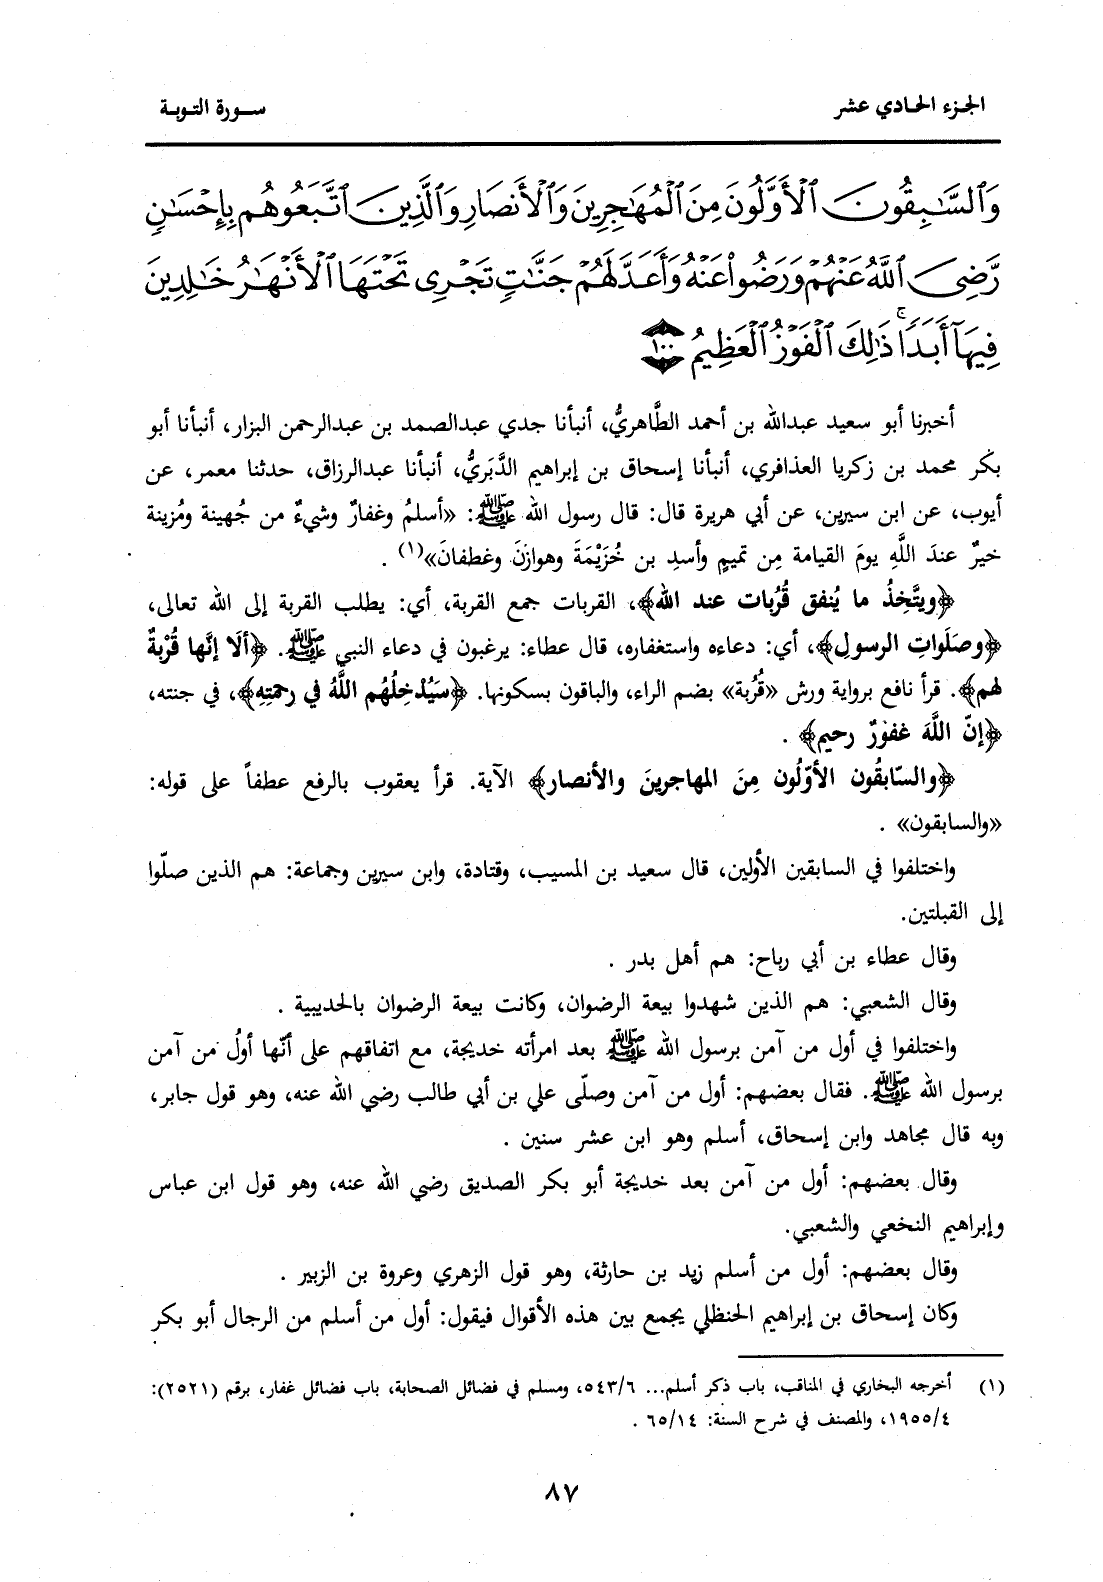 الجزء الحادي عشر
سورة التوبة
وَٱلسَّٰبِقُونَ ٱلْأَوَّلُونَ مِنَ ٱلْمُهَٰجِرِينَ وَٱلْأَنصَارِ وَٱلَّذِينَ ٱتَّبَعُوهُم بِإِحْسَٰنٍ
رَّضِىَ ٱللَّهُ عَنْهُمْ وَرَضُوا۟ عَنْهُ وَأَعَدَّ لَهُمْ جَنَّٰتٍ تَجْرِى تَحْتَهَا ٱلْأَنْهَٰرُ خَٰلِدِينَ
فِيهَآ أَبَدًا ۚ ذَٰلِكَ ٱلْفَوْزُ ٱلْعَظِيمُ ١٠٠
أخبرنا أبو سعيد عبدالله بن أحمد الطَّاهريُّ، أنبأنا جدي عبدالصمد بن عبدالرحمن البزار، أنبأنا أبو
بكر محمد بن زكريا العذافري، أنبأنا إسحاق بن إبراهيم الدَّبَريُّ، أنبأنا عبدالرزاق، حدثنا معمر، عن
أيوب، عن ابن سيرين، عن أبي هريرة قال: قال رسول الله ﷺ: «أسلمُ وغفارٌ وشيءٌ من جُهينة ومُزينة
خيرٌ عندَ اللَّهِ يومَ القيامة مِن تميمٍ وأسدِ بن خُزَيْمَةَ وهوازنَ وغطفانَ»(١) .
﴿ويتَّخِذُ ما يُنفق قُرُبات عند الله﴾، القربات جمع القربة، أي: يطلب القربة إلى الله تعالى،
﴿وصَلَواتِ الرسولِ﴾، أي: دعاءه واستغفاره، قال عطاء: يرغبون في دعاء النبي ﷺ. ﴿ألَا إنَّها قُرْبةٌ
لهم﴾. قرأ نافع برواية ورش «قُرُبة» بضم الراء، والباقون بسكونها. ﴿سَيُدخِلُهُم اللَّهُ في رحمتِهِ﴾، في جنته،
﴿إنّ اللَّهَ غفورٌ رحيم﴾ .
﴿والسّابقُون الأوّلُون مِنَ المهاجرينَ والأنصار﴾ الآية. قرأ يعقوب بالرفع عطفاً على قوله:
«والسابقون» .
واختلفوا في السابقين الأولين، قال سعيد بن المسيب، وقتادة، وابن سيرين وجماعة: هم الذين صلّوا
إلى القبلتين.
وقال عطاء بن أبي رباح: هم أهل بدر .
وقال الشعبي: هم الذين شهدوا بيعة الرضوان، وكانت بيعة الرضوان بالحديبية .
واختلفوا في أول من آمن برسول الله ﷺ بعد امرأته خديجة، مع اتفاقهم على أنّها أولُ من آمن
برسول الله ﷺ. فقال بعضهم: أول من آمن وصلّى علي بن أبي طالب رضي الله عنه، وهو قول جابر،
وبه قال مجاهد وابن إسحاق، أسلم وهو ابن عشر سنين .
وقال بعضهم: أول من آمن بعد خديجة أبو بكر الصديق رضي الله عنه، وهو قول ابن عباس
وإبراهيم النخعي والشعبي.
وقال بعضهم: أول من أسلم زيد بن حارثة، وهو قول الزهري وعروة بن الزبير .
وكان إسحاق بن إبراهيم الحنظلي يجمع بين هذه الأقوال فيقول: أول من أسلم من الرجال أبو بكر
(١) أخرجه البخاري في المناقب، باب ذكر أسلم... ٥٤٣/٦، ومسلم في فضائل الصحابة، باب فضائل غفار، برقم (٢٥٢١):
١٩٥٥/٤، والمصنف في شرح السنة: ٦٥/١٤ .
٨٧